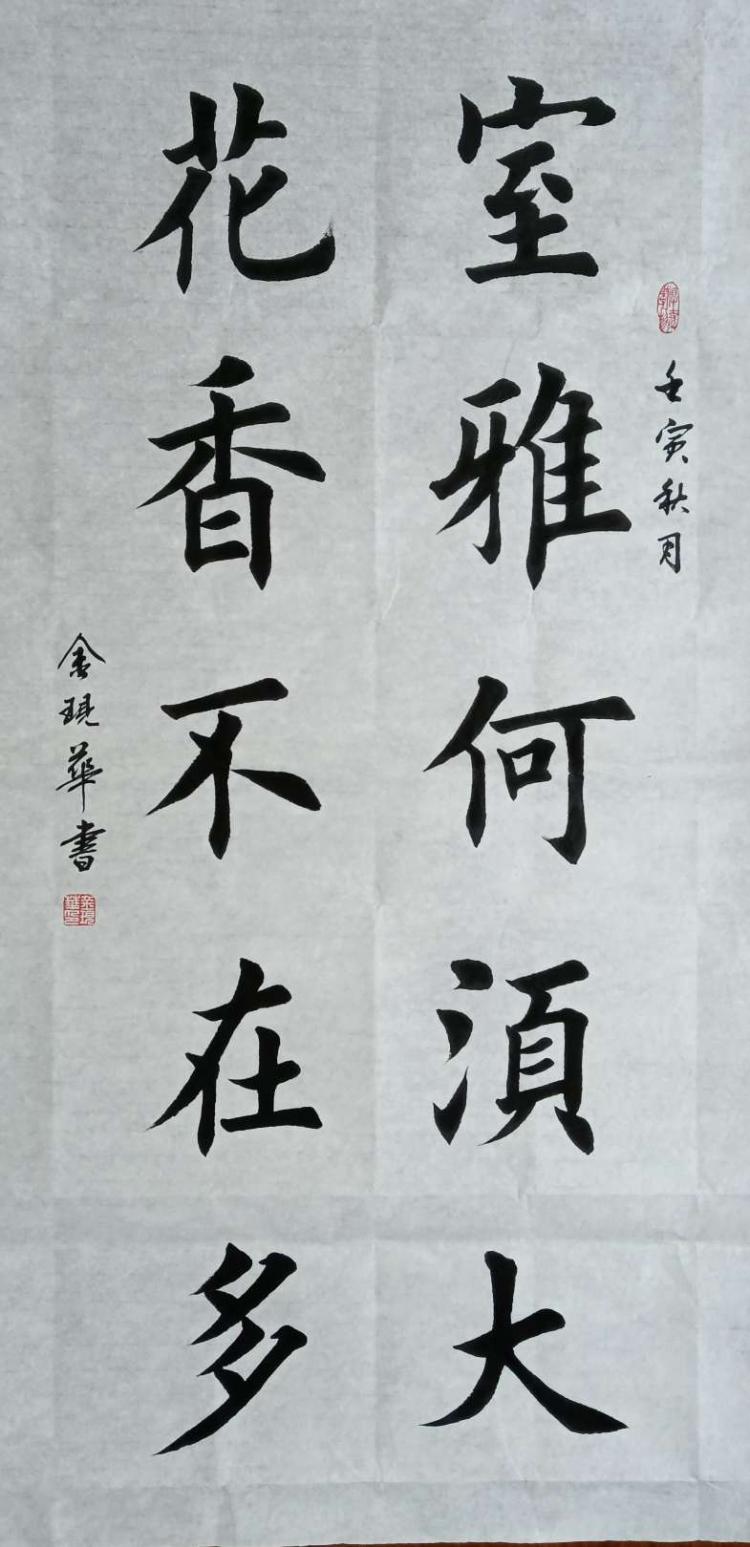 壬寅秋月
室雅何湏大
花香不在多
金現華書